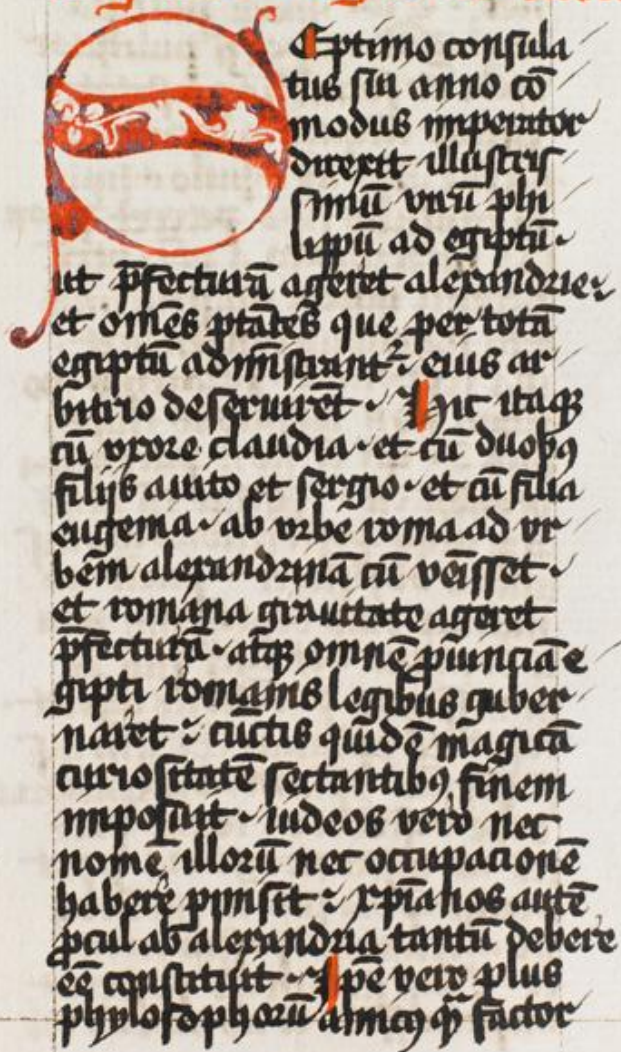 SEptimo consula
tus sui anno cō
modus imperator
direxit illustris
simū virū phi
lippū ad egiptū.
ut p̄fecturā ageret alexandrie.
et om̄es ptātes que per totā
egiptū adm̄istrant᷑. eius ar
bitrio deseruirēt. Hic itaqꝫ
cū vxore claudia. et cū duobꝰ
filijs auito et sergio. et cū filia
eugenia. ab vrbe roma ad vr
bem alexandrinā cū veīsset.
et romana grauitate ageret
p̄fecturā. atqꝫ omnē ꝓuinciā e
gipti romanis legibus guber
naret. cūctis quidē magicā
curiositatē sectantibꝰ finem
imposuit. iudeos vero nec
nomē illorū nec occupacionē
habere ꝑmisit. xp̄ianos autē
ꝓcul ab alexandria tantū debere
eē constituit. Ip̄e vero plus
phylosophorū amicꝰ qͣꝫ factor